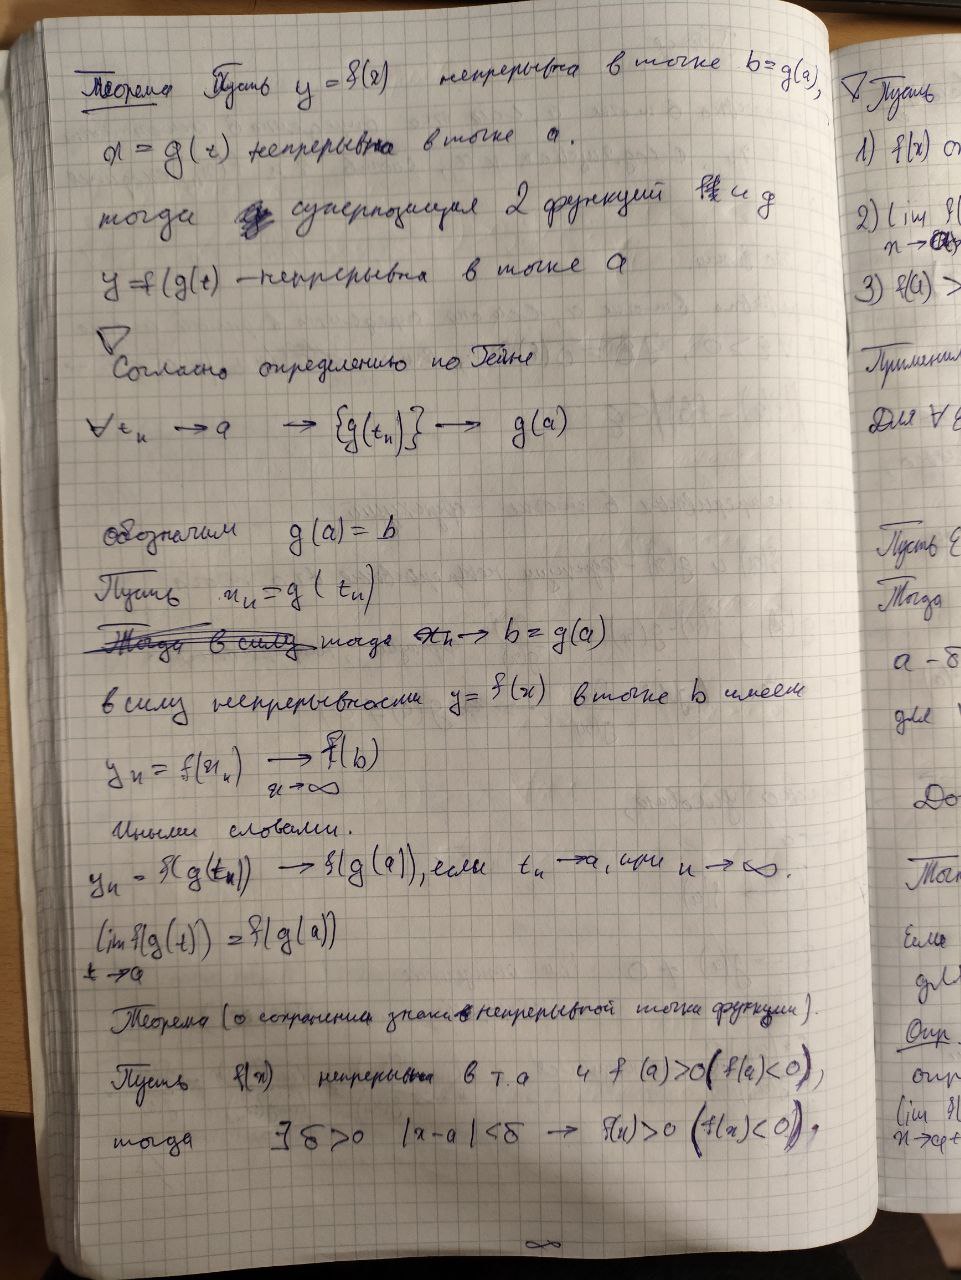 Теорема Пусть y = f(x) непрерывна в точке b = g(a),
x = g(t) непрерывна в точке a.
тогда суперпозиция 2 функций f и g
y = f(g(t) – непрерывна в точке a
▽
Согласно определению по Гейне
∀ tₙ → a → {g(tₙ)} → g(a)
обозначим g(a) = b
Пусть xₙ = g(tₙ)
Тогда в силу тогда xₙ → b = g(a)
в силу непрерывности y = f(x) в точке b имеем
yₙ = f(xₙ) → f(b)
n→∞
Иными словами.
yₙ = f(g(tₙ)) → f(g(a)), если tₙ → a, при n → ∞.
lim f(g(t)) = f(g(a))
t → a
Теорема (о сохранении знака непрерывной точка функции).
Пусть f(x) непрерывна в т. a и f(a)>0 (f(a)<0),
тогда ∃ δ>0 |x-a|<δ → f(x)>0 (f(x)<0).
∞
▽ Пусть
1) f(x)
2) lim f(
x →
3) f(a) >
Для ∀
Пусть
Тогда
a - δ
для
Если
Опр.
lim f(
x→a+